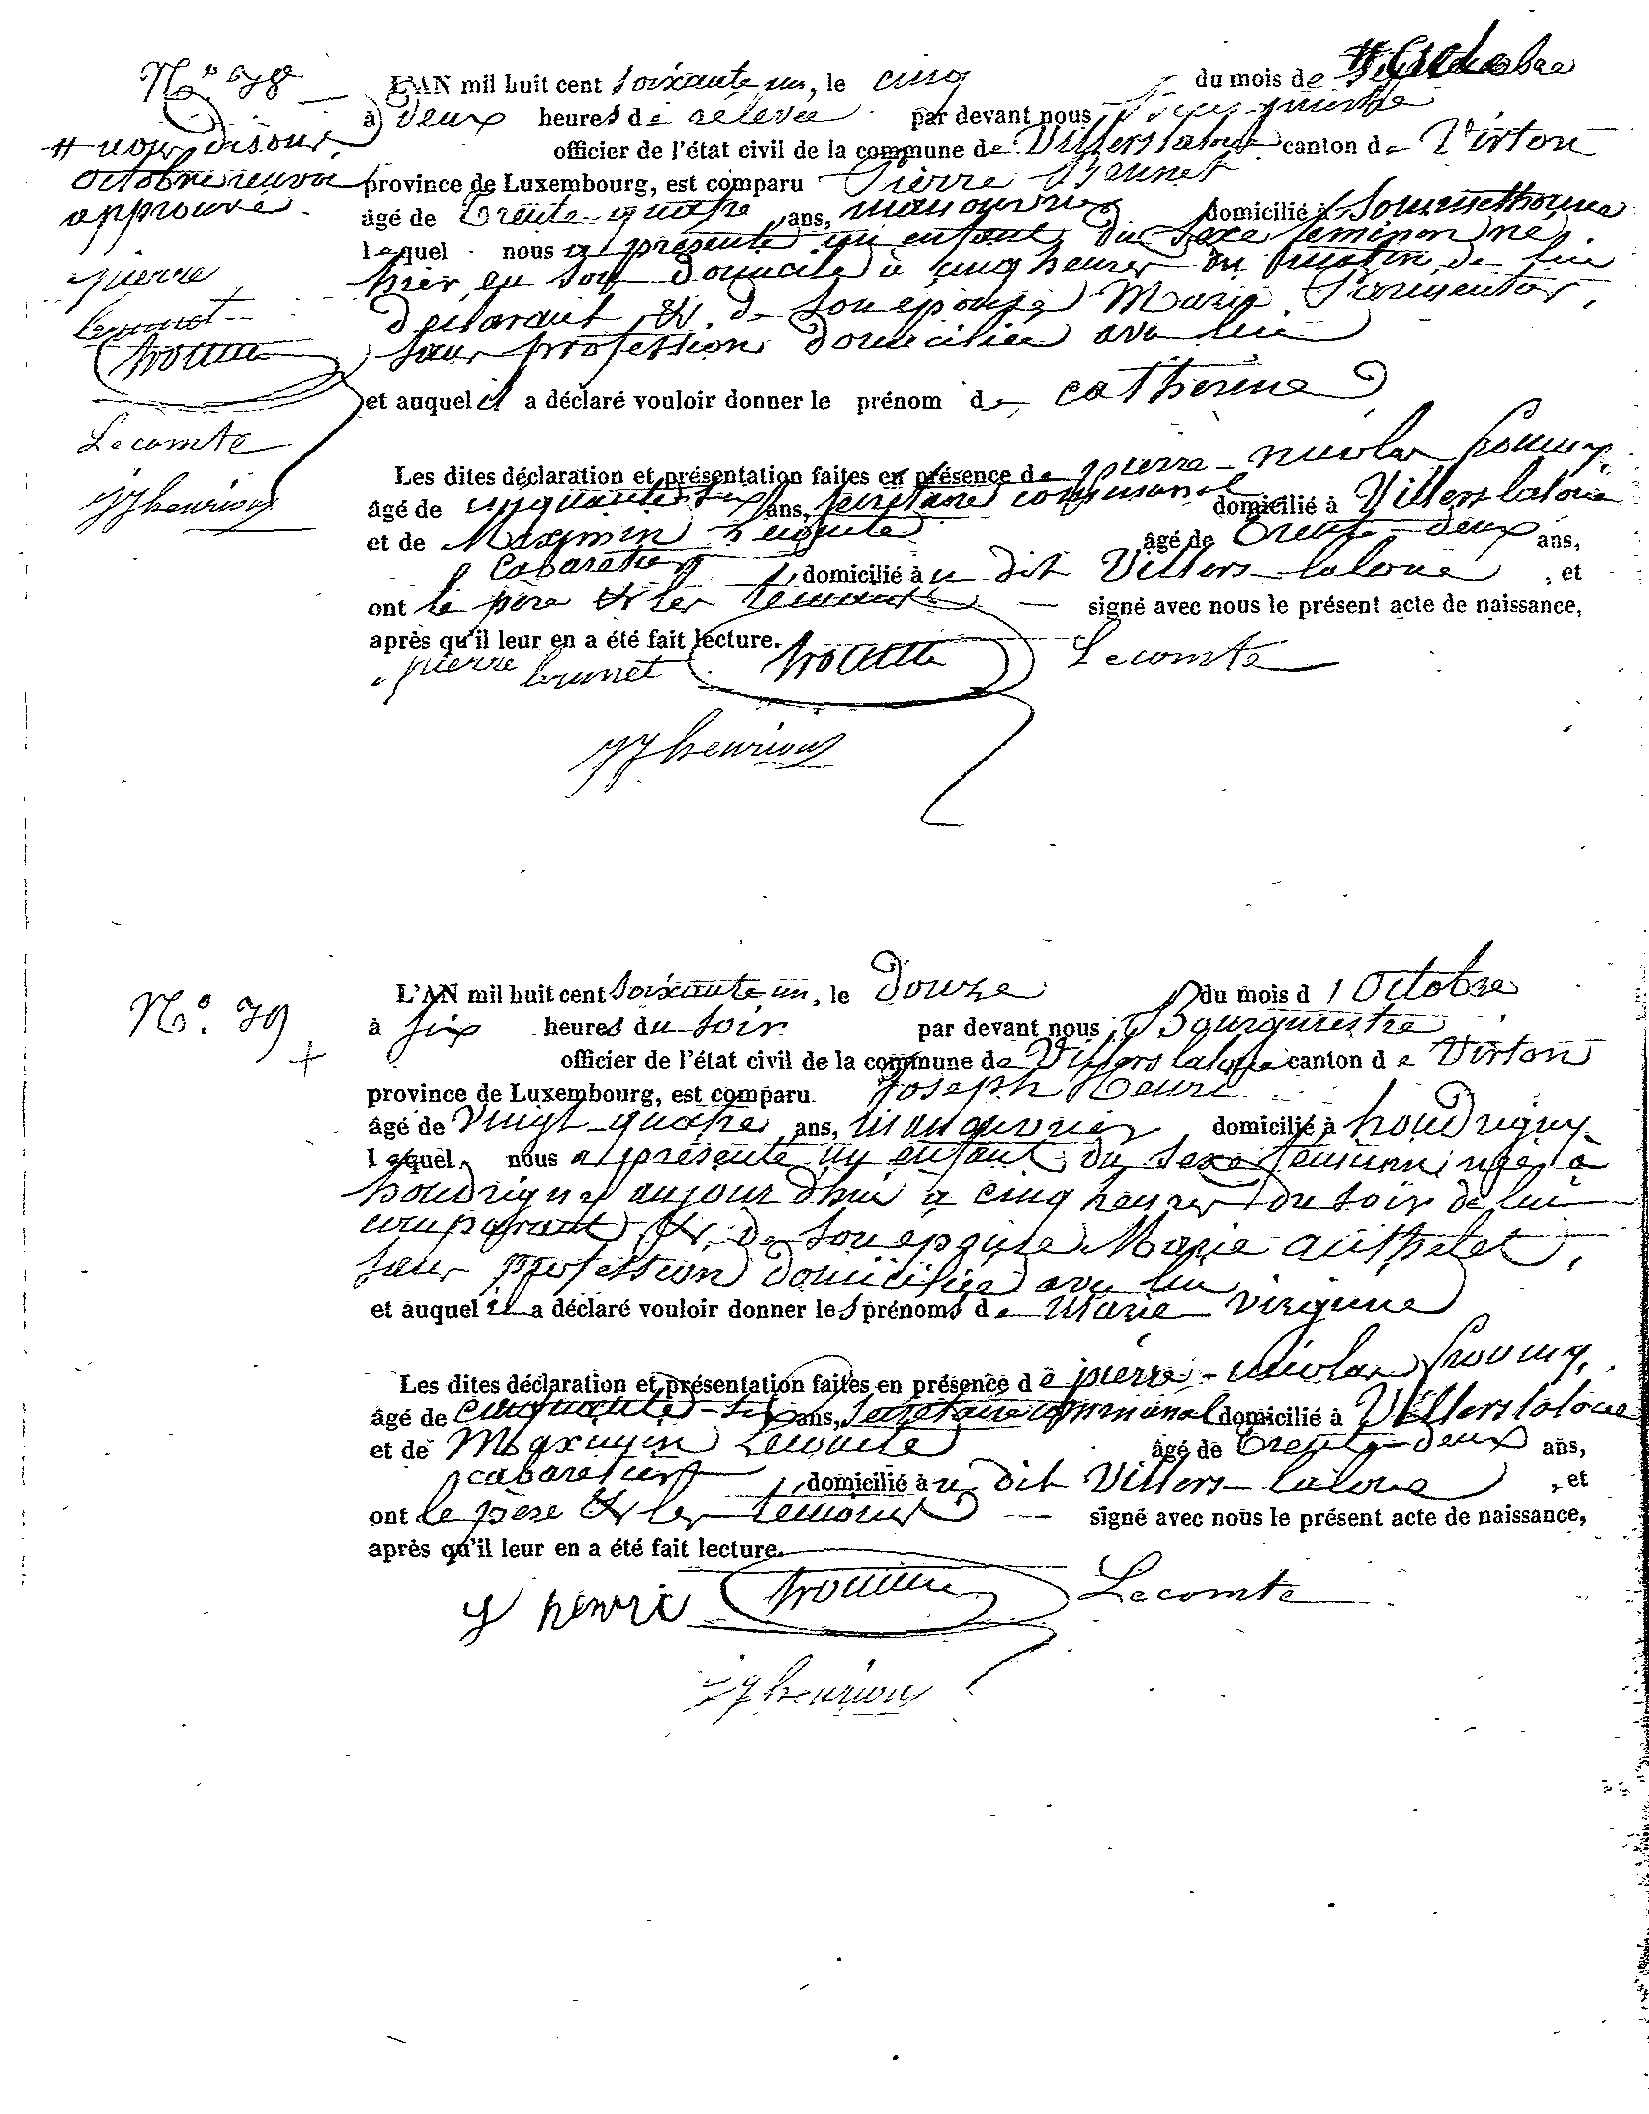 No 78
# nous disons
octobre renvoi
approuvé
pierre
brunet
Lecomte
JJ henrion
L'AN mil huit cent soixante un, le cinq du mois de #
à deux heures de relevée par devant nous
officier de l'état civil de la commune de Villers laloue canton de Virton
province de Luxembourg, est comparu Pierre Brunet
âgé de trente-quatre ans, manouvrier domicilié à Sommethonne
lequel nous a présenté un enfant du sexe feminin né
hier, en son domicile à cinq heures du matin, de lui
déclarant & de son épouse Marie
sans profession domiciliée avec lui
et auquel il a déclaré vouloir donner le prénom de catherine
Les dites déclaration et présentation faites en présence de pierre-nicolas
âgé de cinquante-six ans, secrétaire communal domicilié à Villers laloue
et de Maximin Lecomte âgé de trente-deux ans,
cabaretier, domicilié au dit Villers-laloue, et
ont le père & les témoins signé avec nous le présent acte de naissance,
après qu'il leur en a été fait lecture.
pierre brunet Lecomte
JJ henrion
No. 79
L'AN mil huit cent soixante un, le Douze du mois d'Octobre
à six heures du soir par devant nous, Bourgmestre
officier de l'état civil de la commune de Villers laloue canton de Virton
province de Luxembourg, est comparu Joseph Henri
âgé de vingt-quatre ans, manouvrier domicilié à houdrigny
lequel nous a présenté un enfant du sexe feminin, née à
houdrigny aujourd'hui à cinq heures du soir de lui
comparant & de son épouse Marie
sans profession domiciliée avec lui
et auquel il a déclaré vouloir donner les prénoms de Marie-virginie
Les dites déclaration et présentation faites en présence de pierre-nicolas
âgé de cinquante-six ans, secrétaire communal domicilié à Villers laloue
et de Maximin Lecomte âgé de trente-deux ans,
cabaretier, domicilié au dit Villers-laloue, et
ont le père & les témoins signé avec nous le présent acte de naissance,
après qu'il leur en a été fait lecture.
J henri Lecomte
JJ henrion